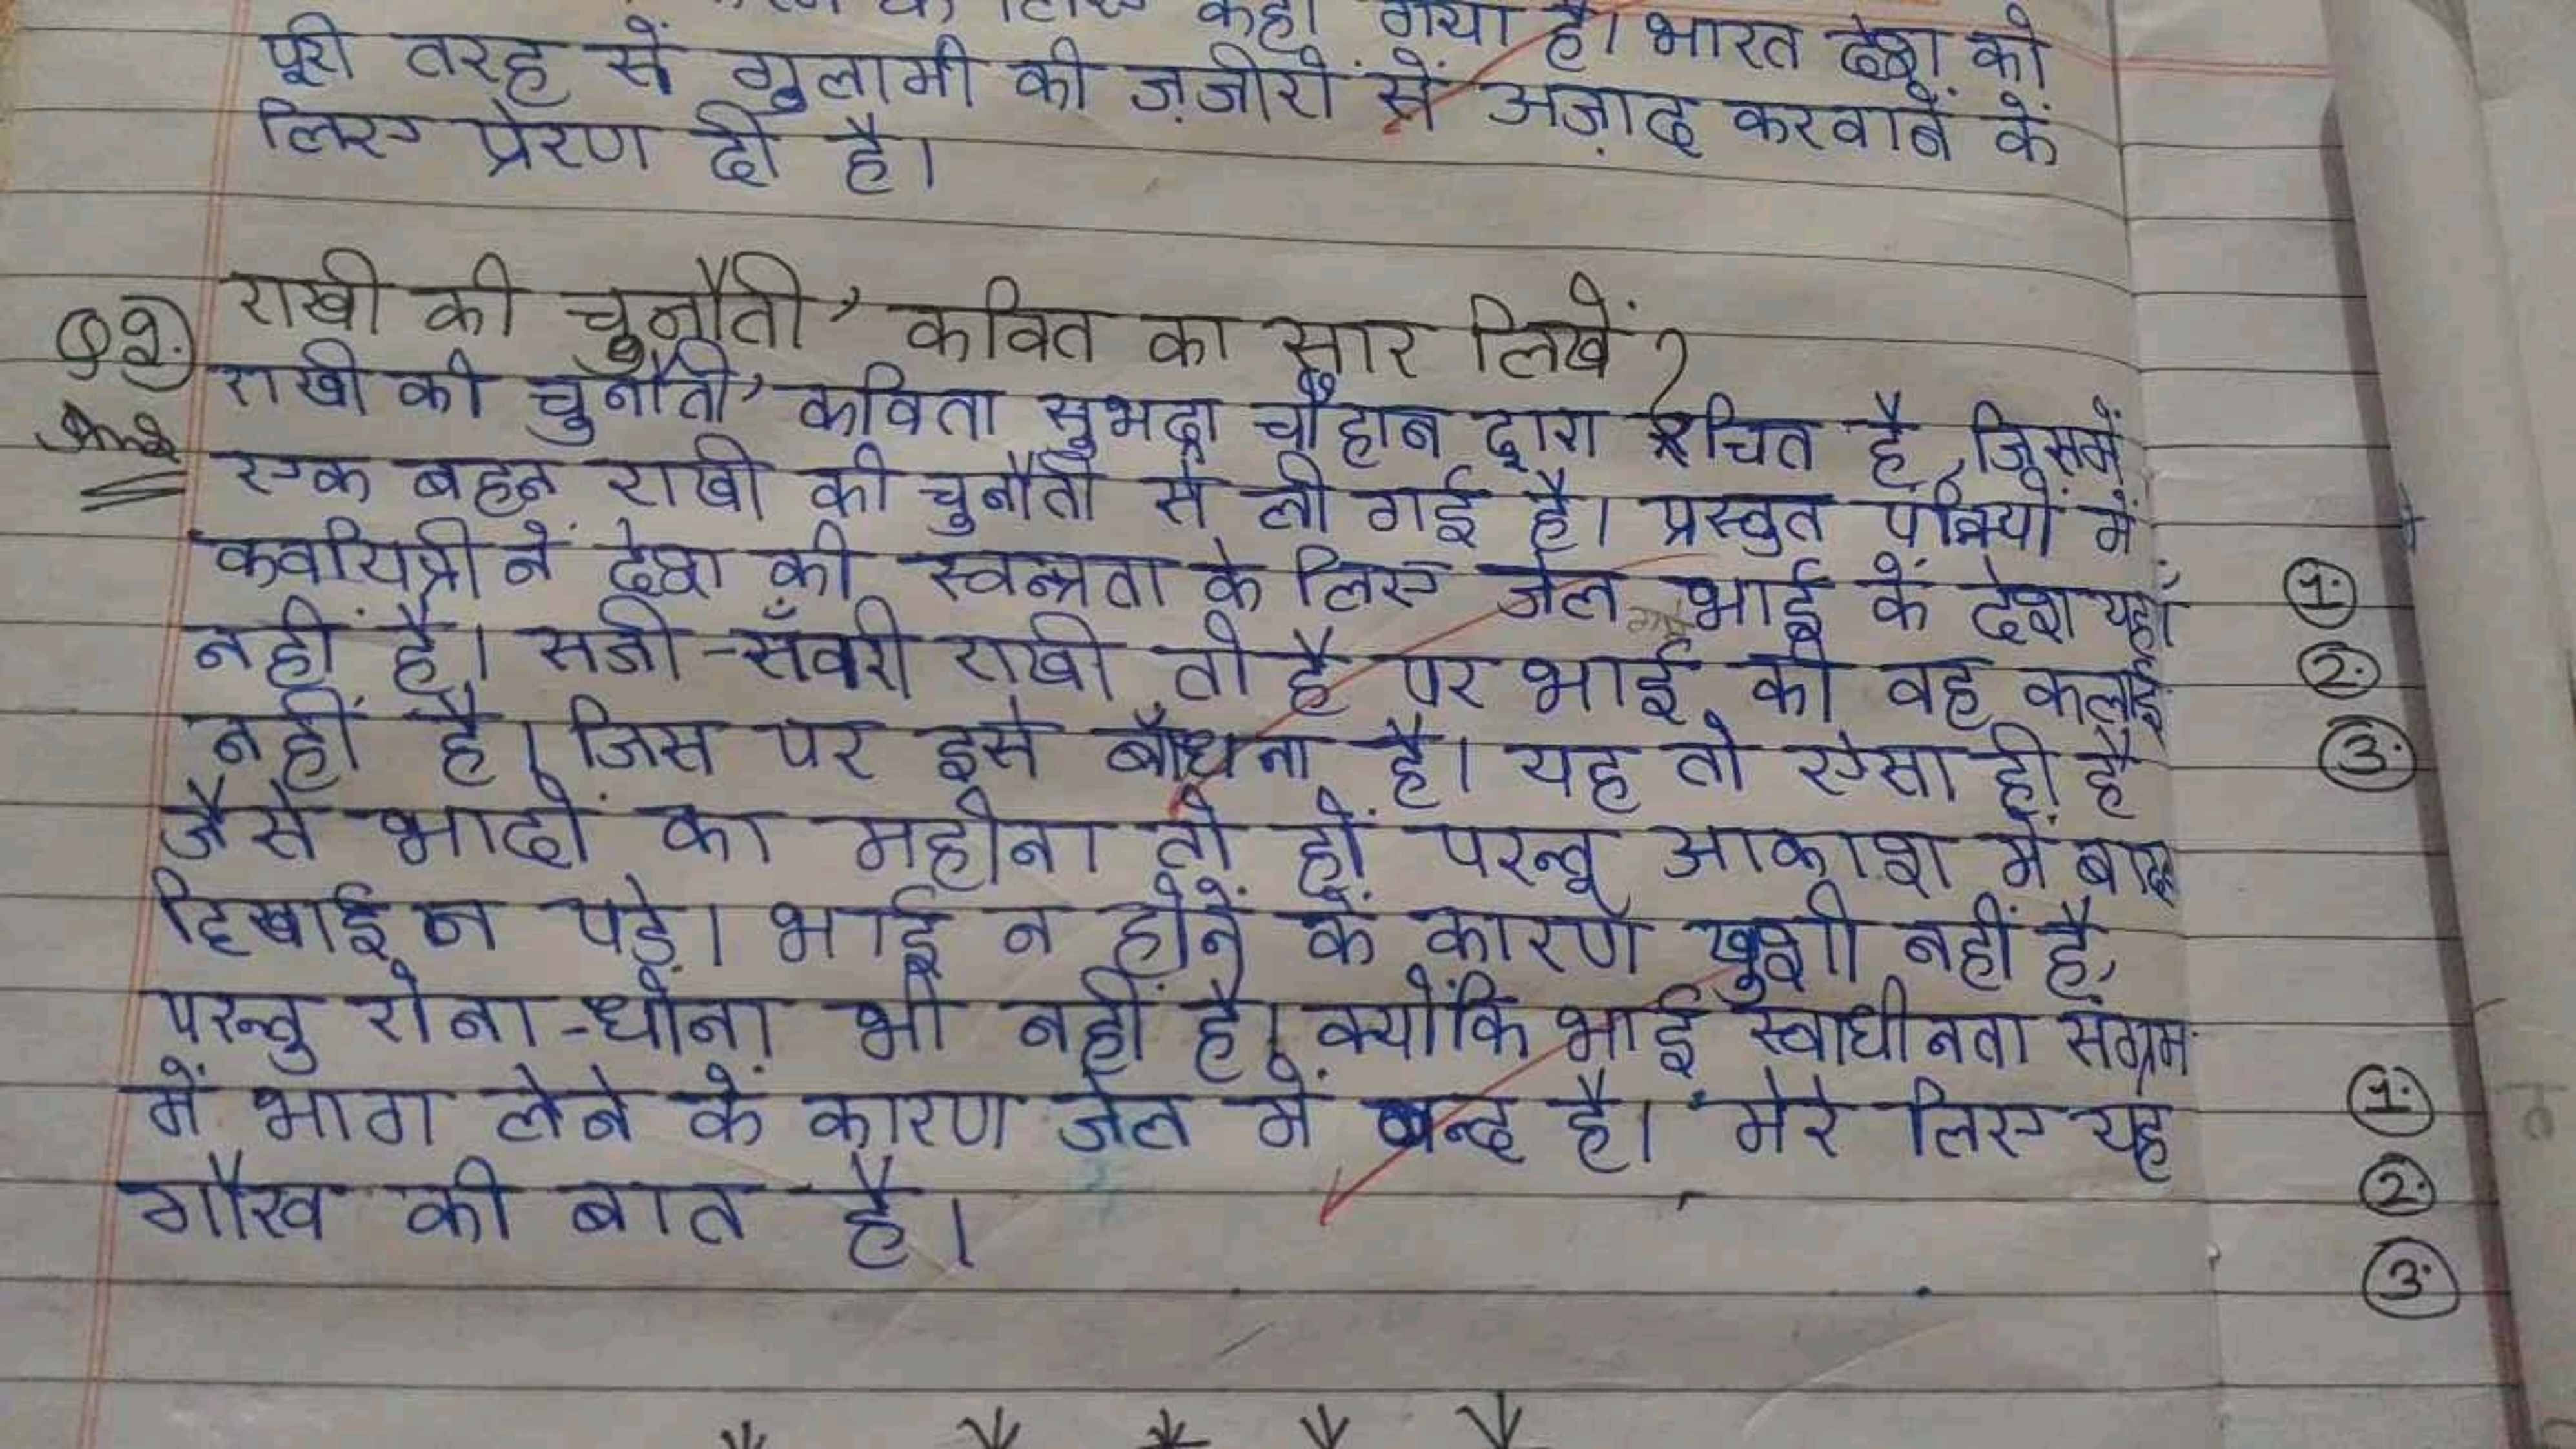 कहा गया है। भारत देश को
पूरी तरह से गुलामी की ज़जीरों से अज़ाद करवाने के
लिए प्रेरण दी है।
Q2. राखी की चुनौती’ कवित का सार लिखें?
Ans राखी की चुनौती’ कविता सुभद्रा चौहान द्वारा रचित है, जिसमें
एक बहन राखी की चुनौती से ली गई है। प्रस्तुत पंक्तियों में
कवयित्री नें देश की स्वन्त्रता के लिए जेल गए भाई कें देश यहाँ
नहीं है। सजी-सँवरी राखी तो है पर भाई की वह कलाई
नहीं है, जिस पर इसे बाँधना है। यह तो ऐसा ही है
जैसे भादों का महीना तो हों परन्तू आकाश में बादल
दिखाई न पड़े। भाई न होनें कें कारण खुशी नहीं है,
परन्तु रोना-धोना भी नहीं है, क्योंकि भाई स्वाधीनता संग्रम
में भाग लेने कें कारण जेल में बन्द है। मेरे लिए यह
गौरव की बात है।
1.
2.
3.
1.
2.
3.